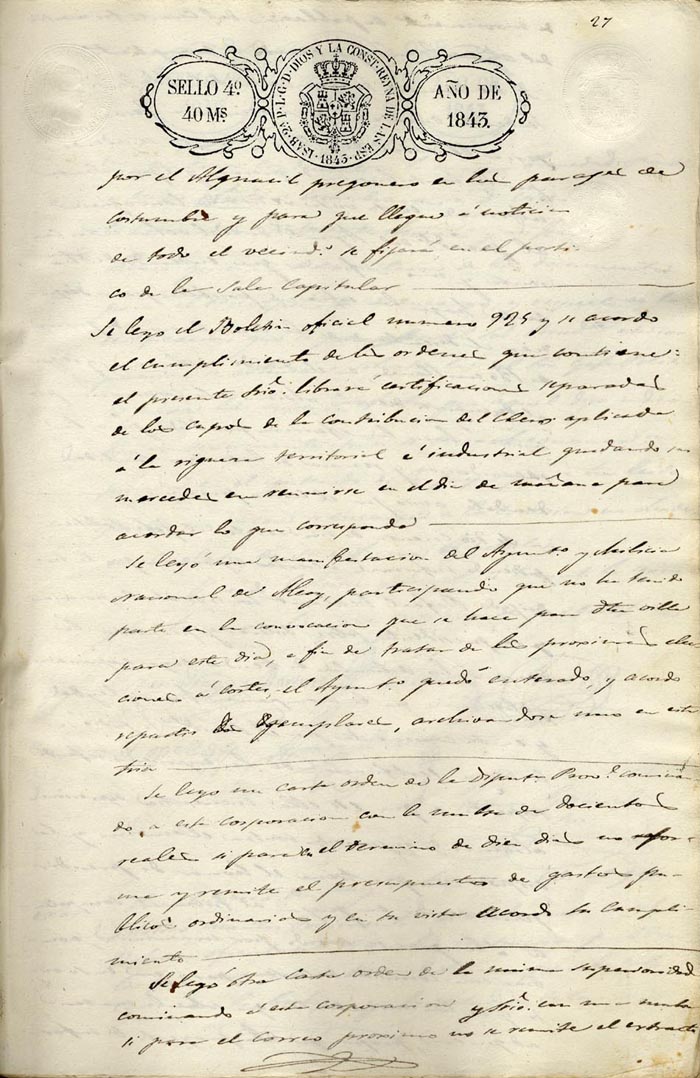 27
SELLO 4º
40 Mˢ
ISAB. 2ª P. L. G. D. DIOS Y LA CONST. REYNA DE LAS ESP.
·1843·
AÑO DE
1843.
por el Alguacil pregonero en los parages de
costumbre y para que llegue á noticia
de todo el vecindº. se fijará en el porti
co de la Sala Capitular
Se leyo el Boletin oficial numero 925 y se acordo
el cumplimiento de las ordenes que contiene:
el presente Srioº. librará certificaciones separadas
de los cupos de la contribucion del Clero aplicada
á la riqueza territorial é industrial quedando sus
mercedes en reunirse en el dia de mañana para
acordar lo que corresponda
Se leyó una manifestacion del Ayunto y Milicia
nacional de Alcoy, participando que no ha tenido
parte en la convocacion que se hace para dha villa
para este dia, a fin de tratar de las proximas elec
ciones á cortes, el Ayuntº. quedó enterado, y acordo
repartir Egemplares, archivandose uno en esta
Sria
Se leyo una carta orden de la Diputn. Provˡ. conminan
do a esta corporacion con la multa de docientos
reales si para el termino de diez dias no
ma y remite el presupuesto de gastos pu
blicos ordinarios y en su vista acordo su cumpli
miento
Se leyó otra carta orden de la misma superioridad
conminando á esta corporacion y Srioº. con una multa
si para el Correo proximo no se remite el extracto